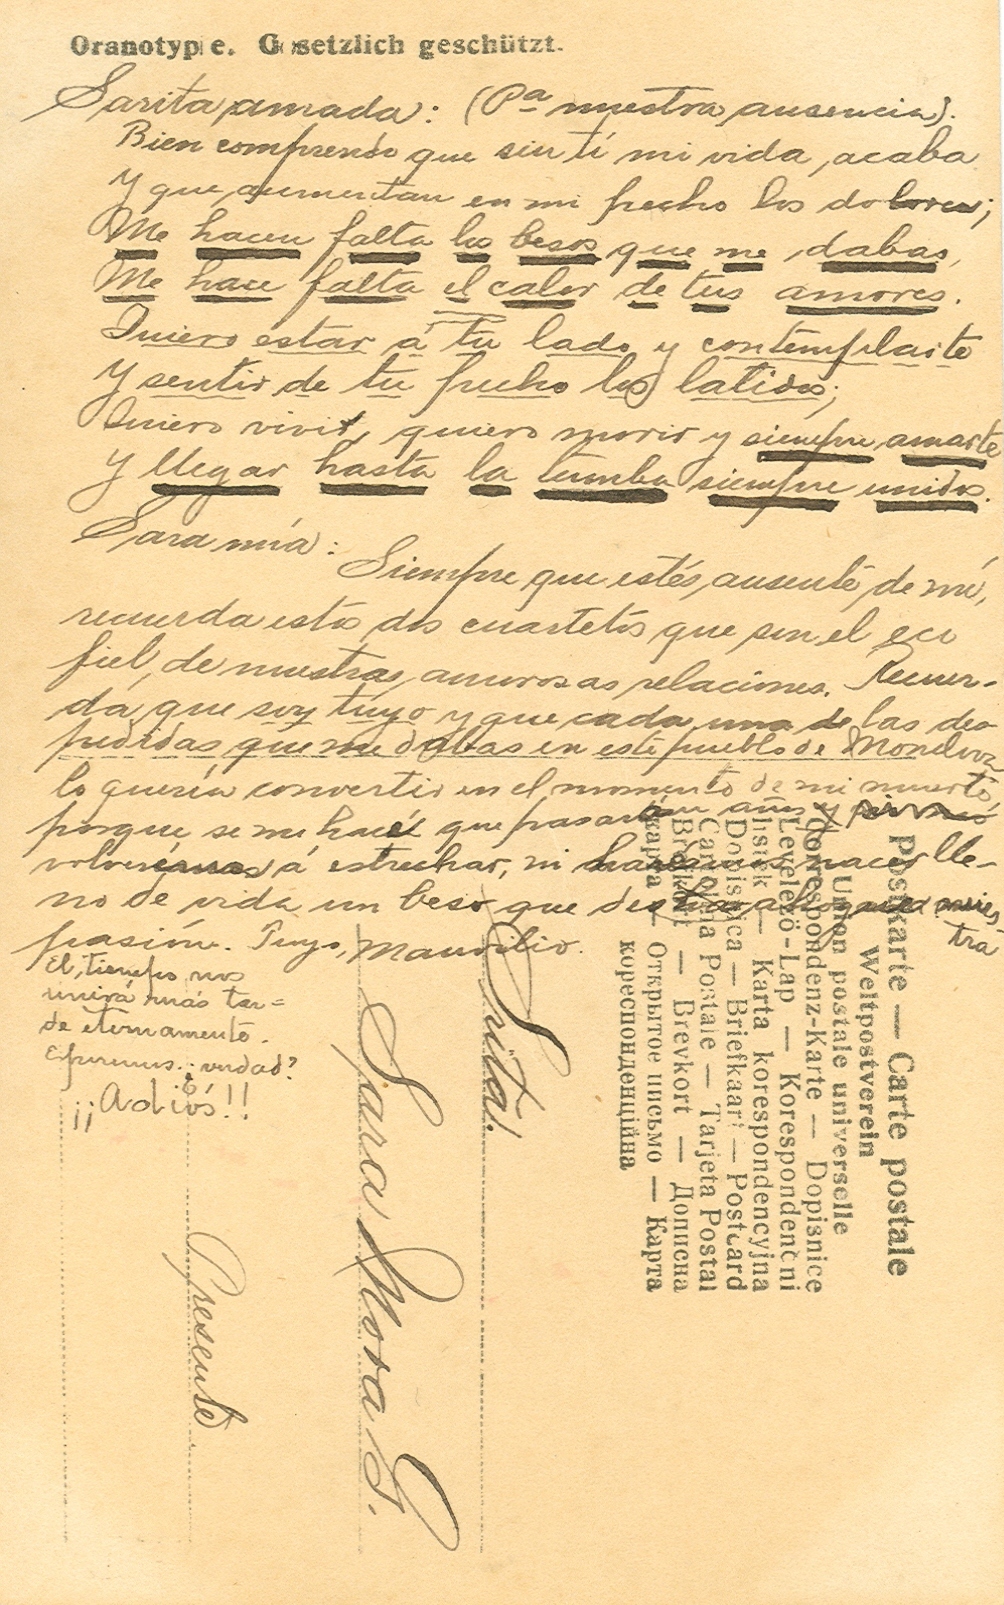 Oranotypie. Gesetzlich geschützt.
Sarita amada: (Pª nuestra ausencia).
Bien comprendo que sin tí mi vida, acaba
Y que aumentan en mi pecho los dolores;
Me hacen falta los besos que me dabas,
Me hace falta el calor de tus amores.
Quiero estar á tu lado y contemplarte
Y sentir de tu pecho los latidos;
Quiero vivir, quiero morir y siempre amarte
Y llegar hasta la tumba siempre unidos.
Sara mía:
Siempre que estés, ausente, de mí,
recuerda estos dos cuartetos que son el eco
fiel, de nuestras, amorosas relaciones. Recuer-
da que soy tuyo y que cada una de las des
pedidas que me dabas en este pueblo de
lo quería convertir en el momento de mi muerte,
porque se me hacía que pasarían años y
volveríamos á estrechar, ni haríamos nacer lle-
no de vida un beso que nues-
tra
pasión. Tuyo, Maurilio.
El, tiempo, nos
unirá más tar=
de eternamente.
Esperemos. verdad?
¡¡Adiós!!
Srita!
Sara Mora G.
Presente.
Postkarte — Carte postale
Weltpostverein
Union postale universelle
Korespondenz-Karte — Dopisnice
Levelező-Lap — Korespondenčni
listek — Karta korespondencyjna
Dopisnica — Briefkaart — Postcard
Cartolina Postale — Tarjeta Postal
Brefkort — Brevkort — Дописна
карта — Открытое письмо — Карта
кореспонденційна